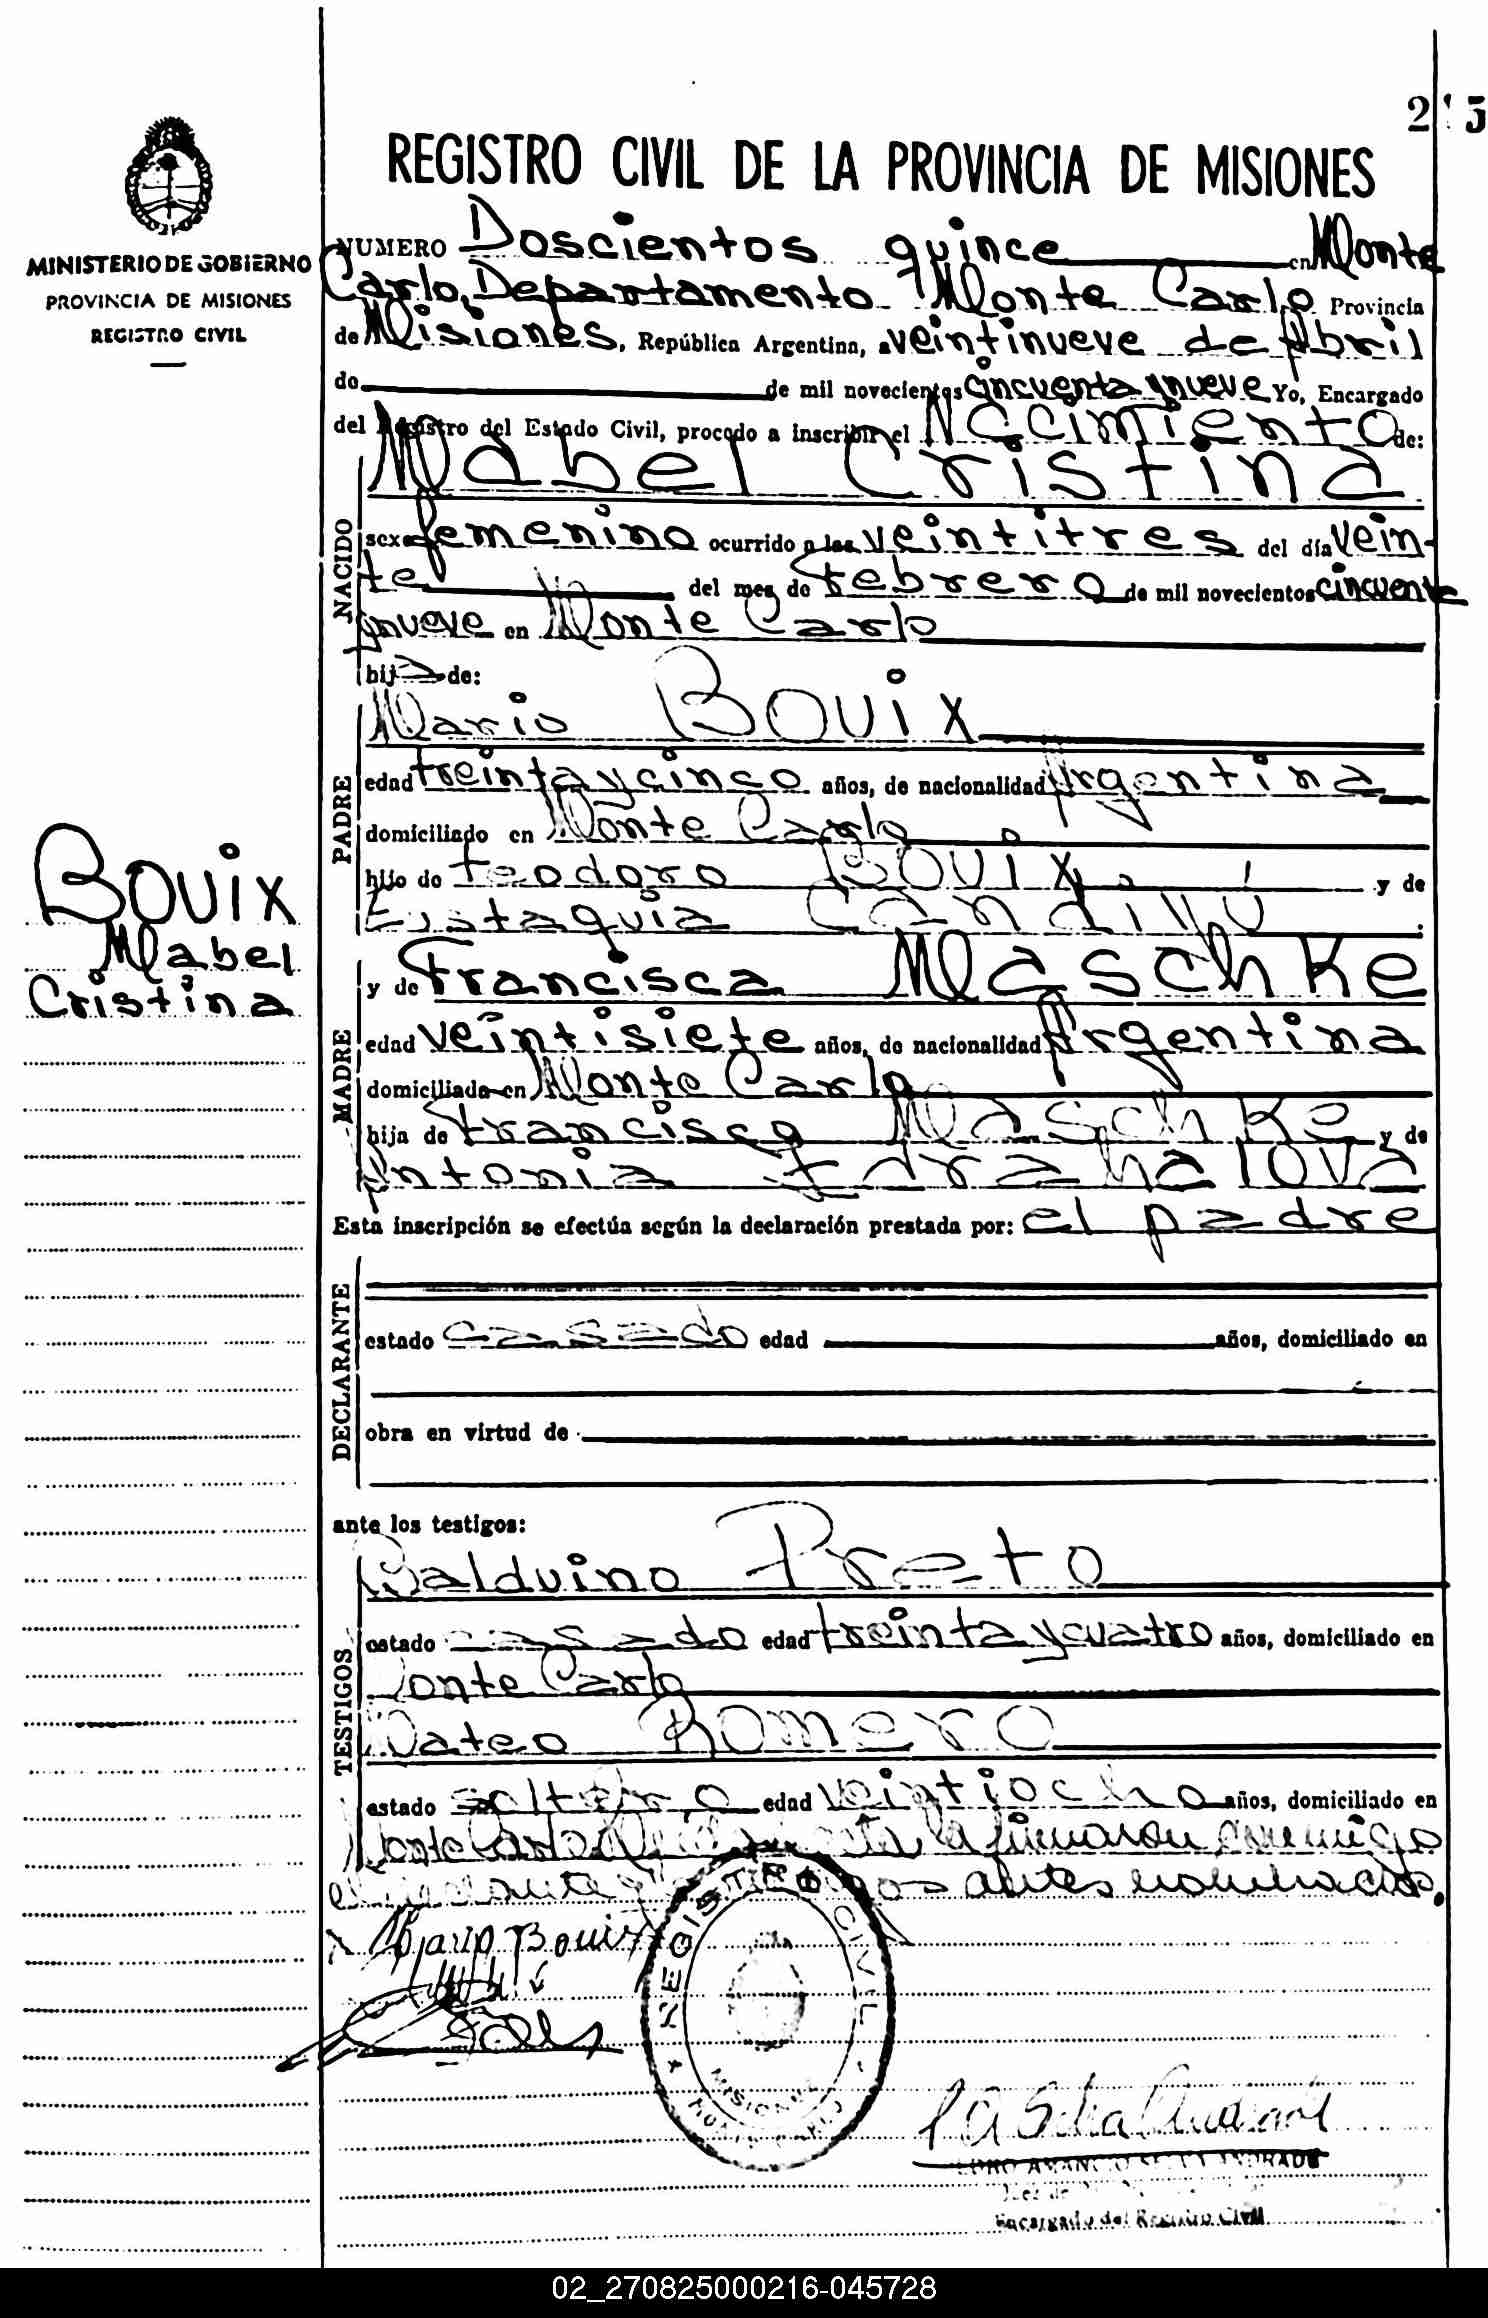 2 5
REGISTRO CIVIL DE LA PROVINCIA DE MISIONES
MINISTERIO DE GOBIERNO
PROVINCIA DE MISIONES
REGISTRO CIVIL
NUMERO Doscientos quince en Monte
Carlo, Departamento Monte Carlo Provincia
de Misiones, República Argentina, a veintinueve de Abril
do de mil novecientos cincuenta y nueve Yo, Encargado
del Registro del Estado Civil, procedo a inscribir el Nacimiento de:
NACIDO
Mabel Cristina
sexo femenino ocurrido a las veintitres del día vein-
te del mes de febrero de mil novecientos cincuenta
y nueve en Monte Carlo
hija de:
PADRE
Mario BOUiX
edad treinta y cinco años, de nacionalidad Argentina
domiciliado en Monte Carlo
hijo de Teodoro BOUiX y de
Eustaquia
BOUiX
Mabel
Cristina
MADRE
y de Francisca MaschKe
edad veintisiete años, de nacionalidad Argentina
domiciliada en Monte Carlo
hija de Francisco MaschKe y de
Antonia
Esta inscripción se efectúa según la declaración prestada por: el padre
DECLARANTE
estado casado edad años, domiciliado en
obra en virtud de
ante los testigos:
TESTIGOS
Balduino Preto
estado casado edad treinta y cuatro años, domiciliado en
Monte Carlo
Mateo Romero
estado soltero edad veintiocho años, domiciliado en
Monte Carlo la firmaron conmigo
antes nombrados.
Mario Bouix
REGISTRO CIVIL
MISIONES
Encargado del Registro Civil
02_270825000216-045728